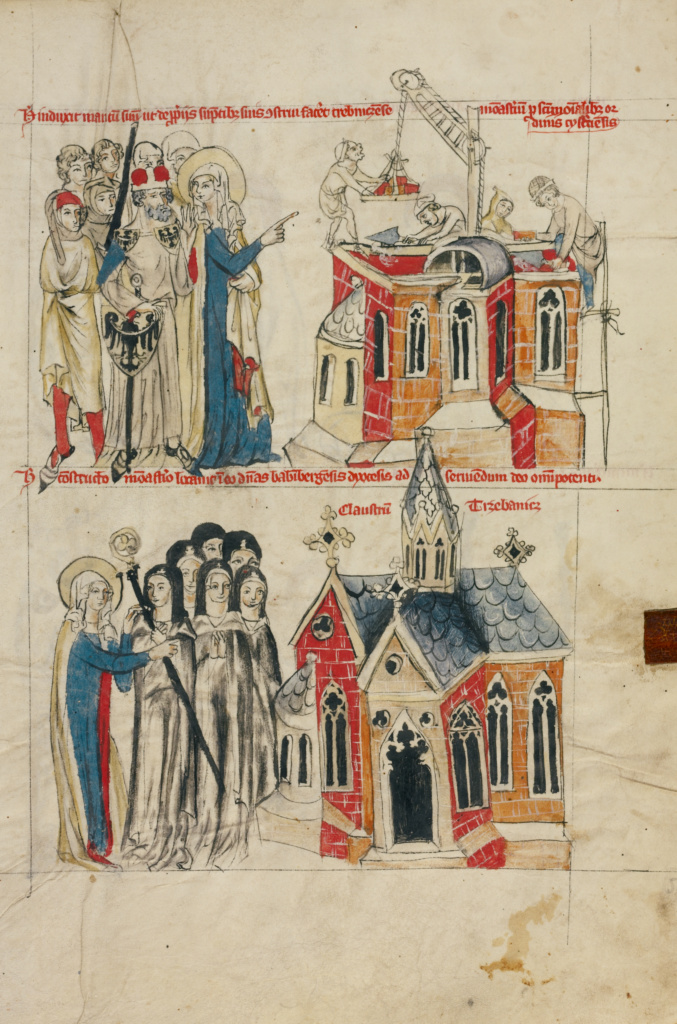 Hic induxit maritum suum ut de propriis sumptibus suis construi faceret trebnicense monasterium pro sanctimonialibus or
dinis cysterciensis
Hic constructo monasterio locavit in eo dominas babinbergensis dyocesis ad serviendum deo omnipotenti.
Claustrum Trzebanicz